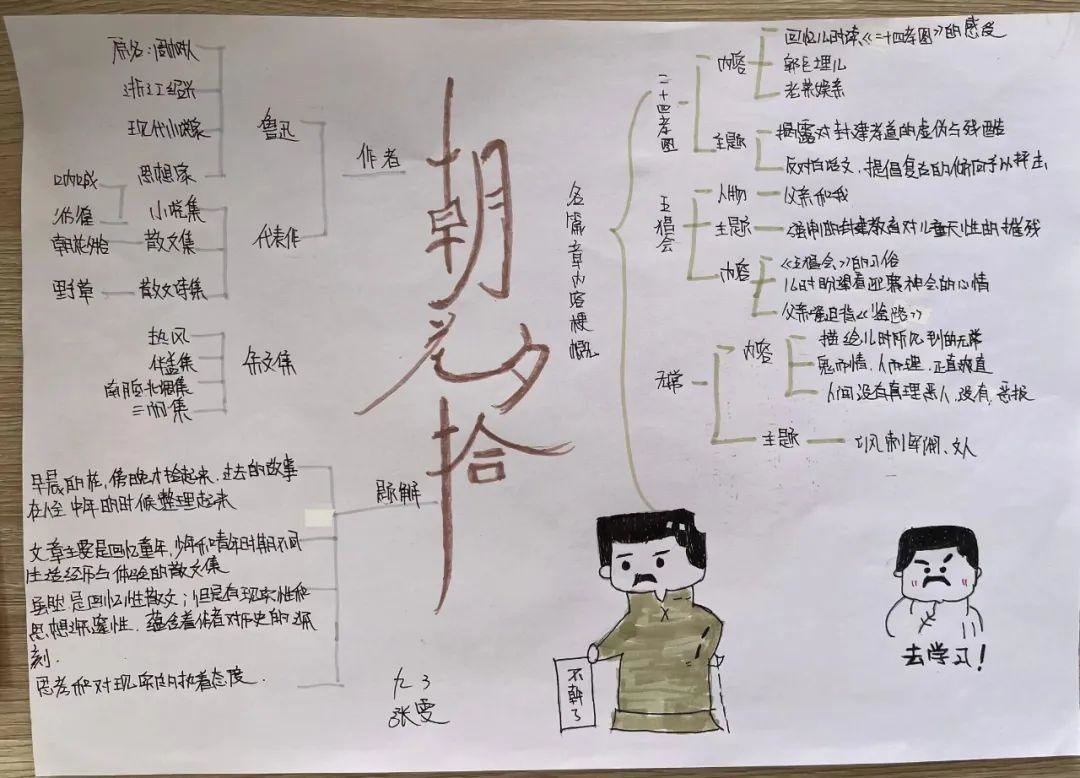 朝花夕拾
作者
鲁迅
原名:周树人
浙江绍兴
现代小说家
思想家
代表作
小说集
呐喊
彷徨
散文集
朝花夕拾
散文诗集
野草
杂文集
热风
华盖集
南腔北调集
三闲集
题解
早晨的花,傍晚才捡起来,过去的故事
在人至中年的时候整理起来
文章主要是回忆童年,少年和青年时期不同
生活经历与体验的散文集
虽然是回忆性散文;但是有现实性和
思想深邃性.蕴含着作者对历史的深
刻.
思考和对现实的执着态度.
九3
张雯
各篇章内容梗概
二十四孝图
内容
回忆儿时读《二十四孝图》的感受
郭巨埋儿
老莱娱亲
主题
揭露对封建孝道的虚伪与残酷
反对白话文,提倡复古的倾向予以抨击
五猖会
人物
父亲和我
主题
强制的封建教育对儿童天性的摧残
内容
《五猖会》的习俗
儿时盼望看迎赛神会的心情
父亲强迫背《鉴略》
无常
内容
描绘儿时所见到的无常
鬼而情,人而理,正直爽直
人间没有真理恶人,没有,恶报
主题
讽刺军阀、文人
不朝了
去学习!